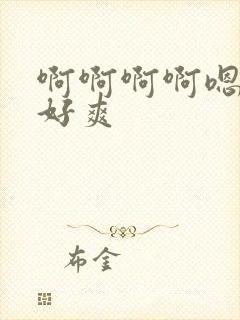 啊啊啊啊嗯
好爽
布金